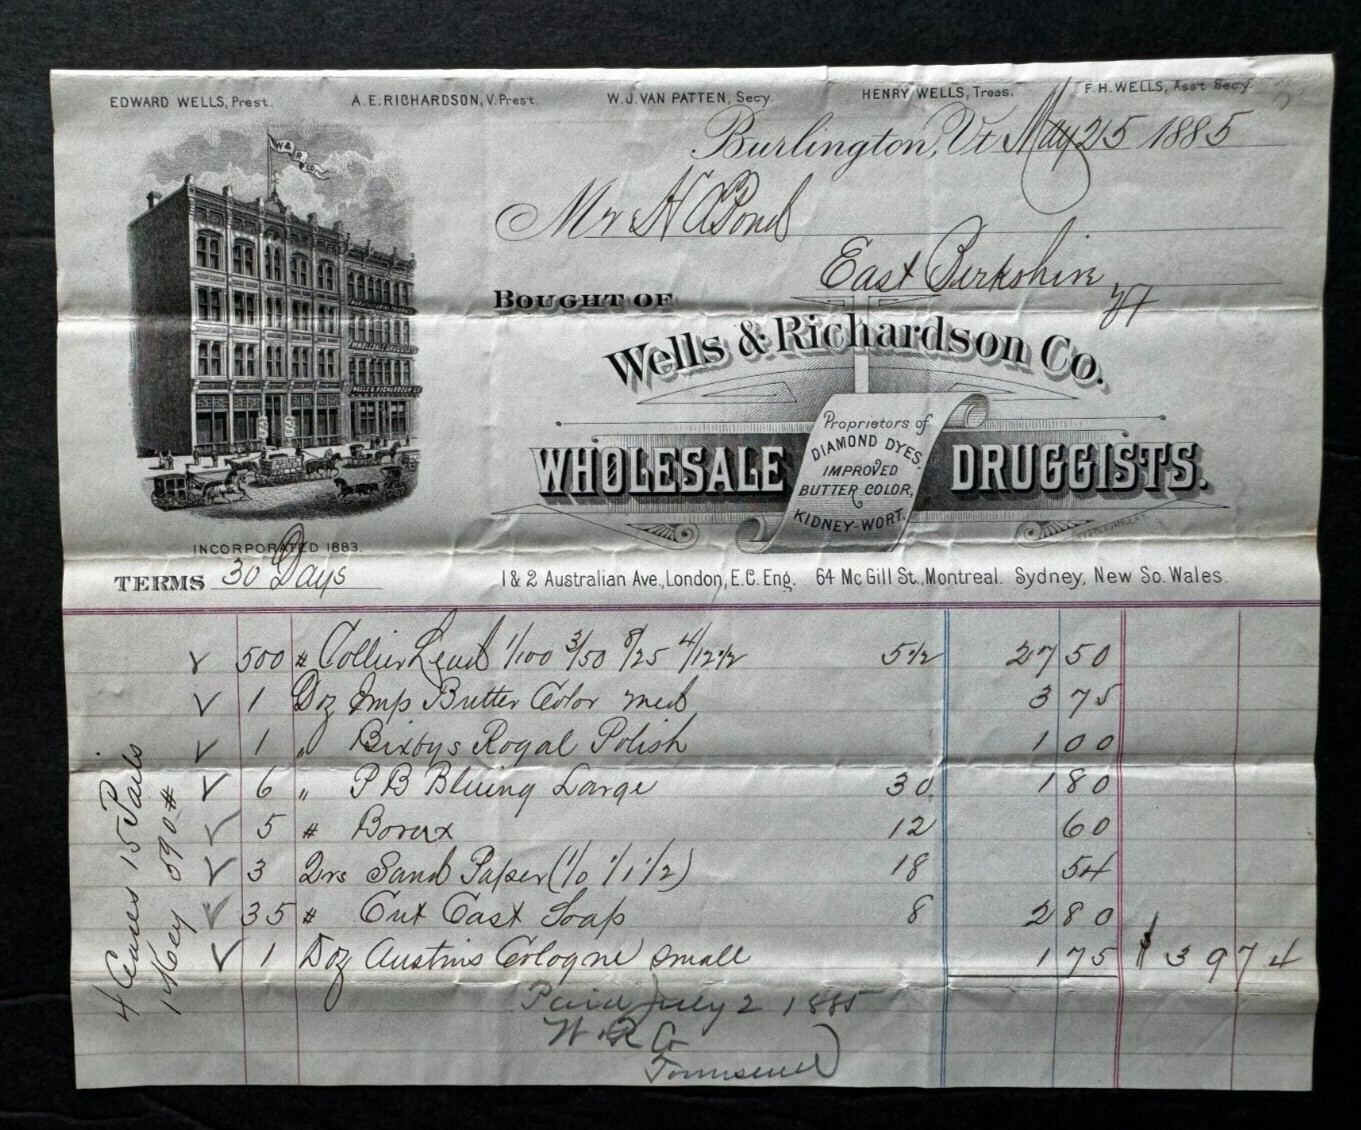 EDWARD WELLS, Prest. A.E. RICHARDSON, V. Prest. W.J. VAN PATTEN, Secy. HENRY WELLS, Treas. F.H. WELLS, Ass't Secy.
Burlington, Vt May 25 1885
Mr H A Pond
East Berkshire
Vt
BOUGHT OF
Wells & Richardson Co.
WHOLESALE DRUGGISTS.
Proprietors of
DIAMOND DYES,
IMPROVED
BUTTER COLOR,
KIDNEY-WORT.
W & R Co
WHOLESALE DRUGGISTS
WELLS & RICHARDSON CO
INCORPORATED 1883.
TERMS 30 Days
1 & 2 Australian Ave., London, E.C. Eng. 64 Mc Gill St., Montreal. Sydney, New So. Wales.
✓ 500 # Collier Lead 1/100 3/50 8/25 4/12 1/2 5 1/2 27 50
✓ 1 Doz Imp Butter Color med 3 75
✓ 1 " Bixbys Royal Polish 1 00
✓ 6 " P B Bluing Large 30 1 80
✓ 5 # Borax 12 60
✓ 3 Qrs Sand Paper (1/0 1/1 1/2) 18 54
✓ 35 # Cut Cast Soap 8 2 80
✓ 1 Doz Austins Cologne small 1 75 $ 39 74
4 Cases 15 Pails
1 Keg 590 #
Paid July 2 1885
W & R Co
Townsend